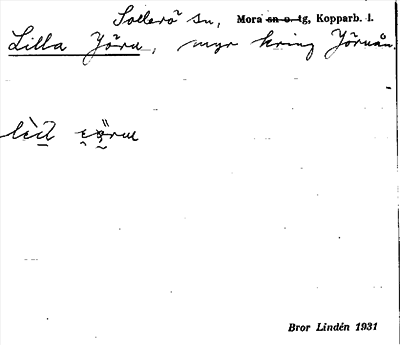 Sollerö sn, Mora sn o. tg, Kopparb. l.
Lilla Jöru, myr kring Jöruån.
Bror Lindén 1931